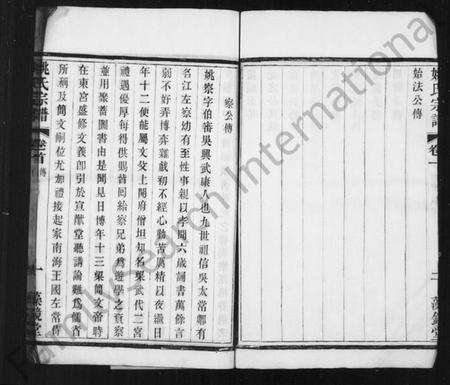 姚氏宗譜
卷一
始法公傳
二
藻鏡堂
察公傳
姚察字伯審吳興武康人也九世祖信吳太常卿有
名江左察幼有至性事親以孝聞六歲誦書萬餘言
弱不好弄博弈雜戲初不經心勤苦厲精以夜繼日
年十二便能屬文父上開府僧坦知名梁武代二宮
禮遇優厚每得供賜皆回給察兄弟為遊學之資察
並用聚蓄圖書由是聞見日博年十三梁簡文帝時
在東宮盛修文義即引於宣猷堂聽講論難為儒者
所稱及簡文嗣位尤加禮接起家南海王國左常侍
姚氏宗譜
卷首
傳
一
藻鏡堂
Family Search International